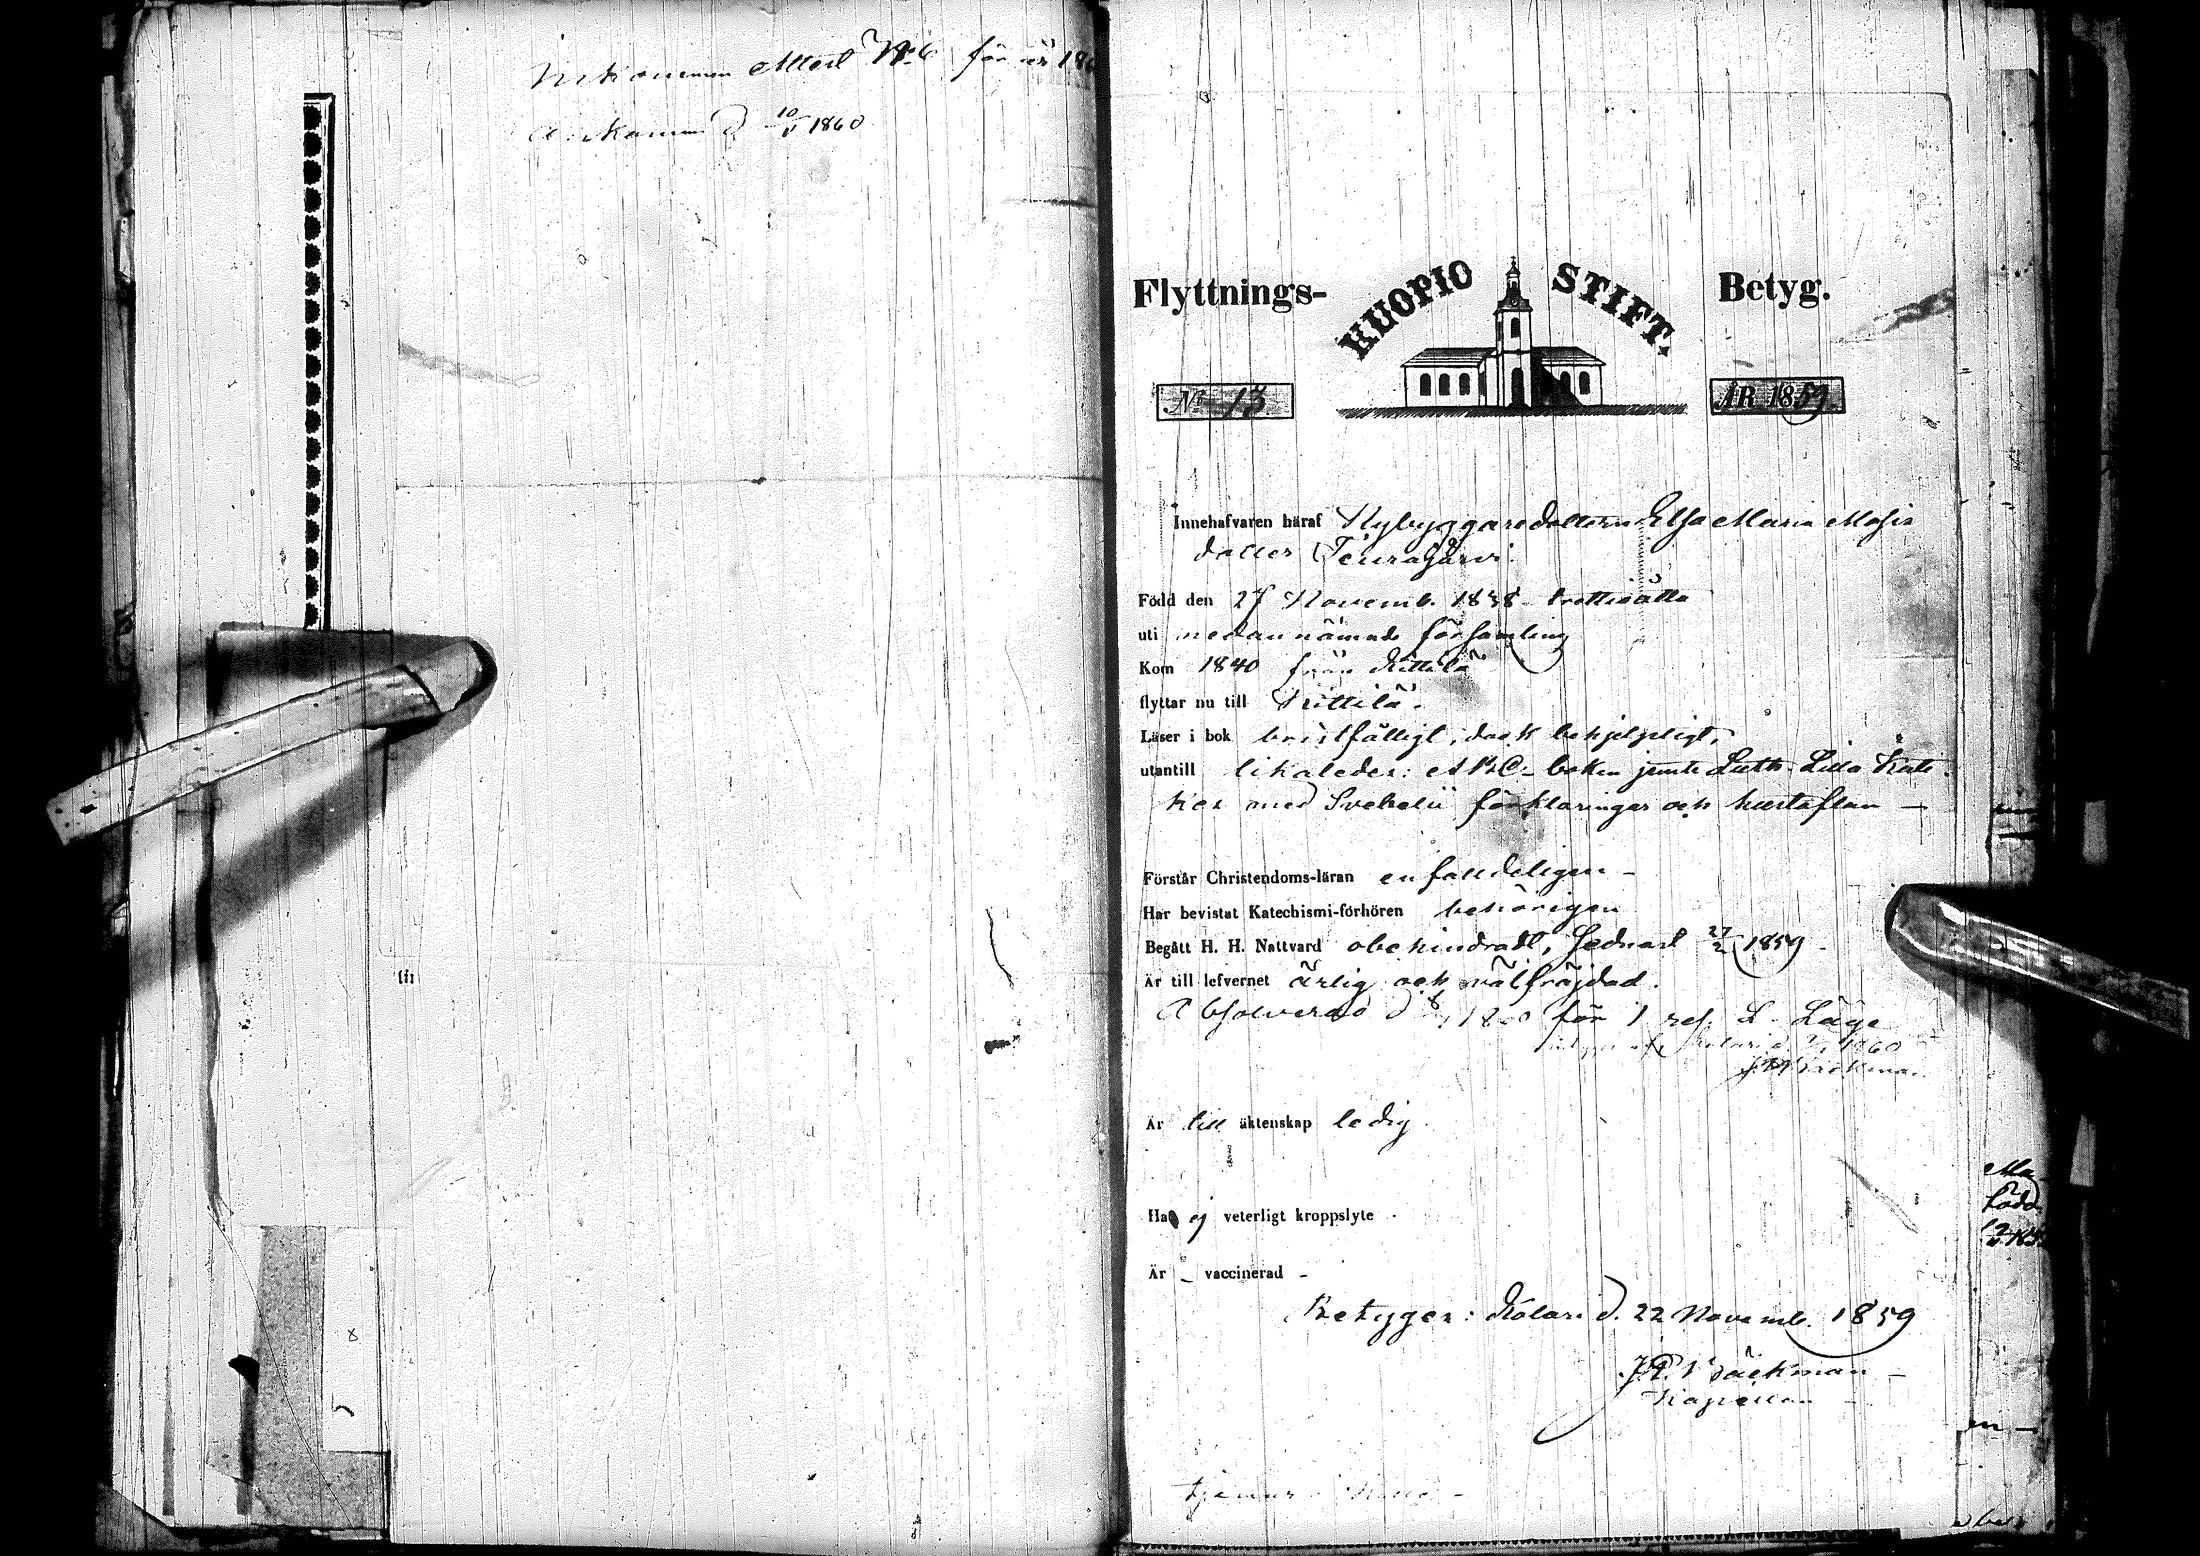 Inkommen Attest No 6 för år 186
Ankommen d 10/1 1860
Flyttnings-
KUOPIO STIFT.
Betyg.
No 13
ÅR 1859.
Innehafvaren häraf Nybyggaredottern Elsa Maria Mathis
dotter Teurajärvi
Född den 27 Novemb. 1838 trettioåtta
uti nedannämnde församling
Kom 1840 från Kittilä
flyttar nu till Kittilä.
Läser i bok bristfälligt, dock behjelpligt,
utantill likaledes: ABC-boken jemte Luth. Lilla Kate-
kes med Svebelii förklaringar och hustaflan —
Förstår Christendoms-läran enfaldeligen —
Har bevistat Katechismi-förhören behörigen
Begått H. H. Nattvard obehindradt, sednast 27/2 1859 —
Är till lefvernet ärlig och välfräjdad.
Absolverad d 8/1 1860 för 1 res. L. Läge
Kolari d. 1860
Är till äktenskap ledig
Ha ej veterligt kroppslyte
Är — vaccinerad —
Betygar: Kolari d. 22 Novemb. 1859
J.P. Bäckman —
Kapellan —
tjenar
lin
Ma
född